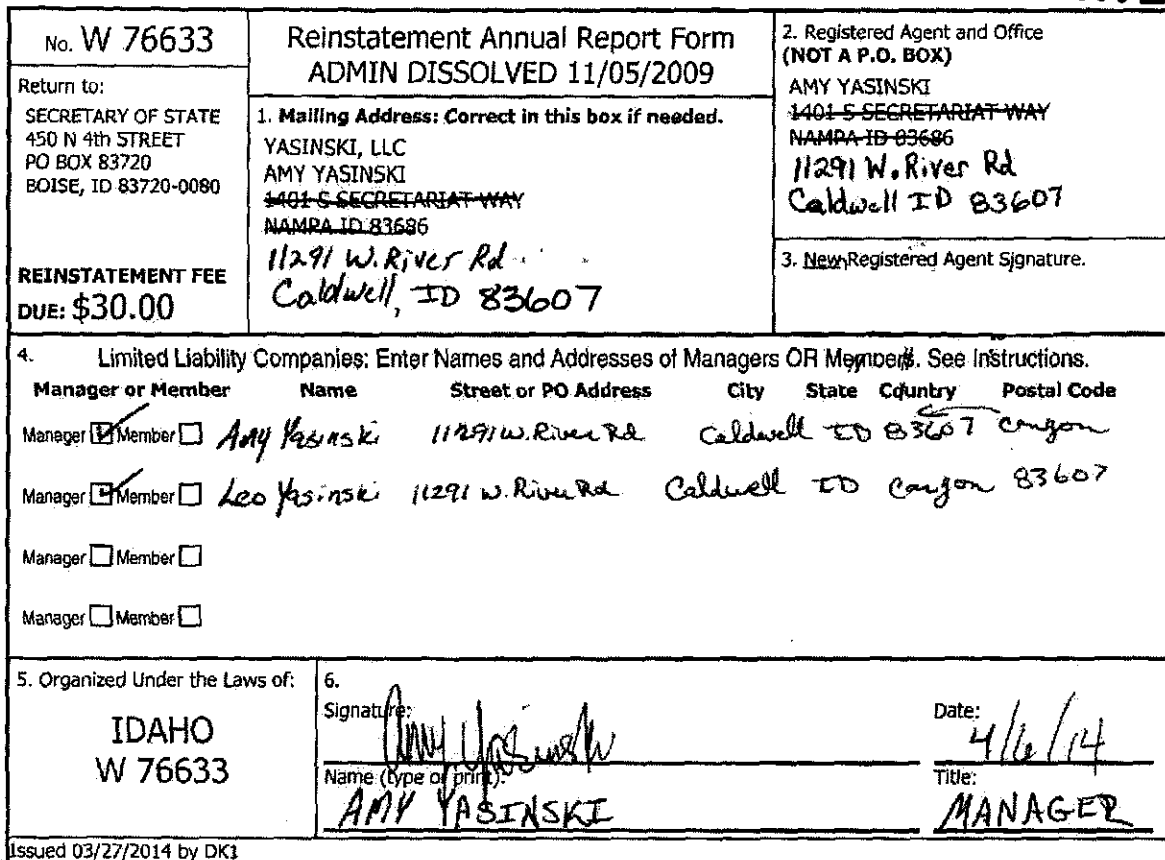 No. W 76633
Return to:
SECRETARY OF STATE
450 N 4th STREET
PO BOX 83720
BOISE, ID 83720-0080
REINSTATEMENT FEE
DUE: $30.00
Reinstatement Annual Report Form
ADMIN DISSOLVED 11/05/2009
1. Mailing Address: Correct in this box if needed.
YASINSKI, LLC
AMY YASINSKI
1401 S SECRETARIAT WAY
NAMPA ID 83686
11291 W. River Rd
Caldwell, ID 83607
2. Registered Agent and Office
(NOT A P.O. BOX)
AMY YASINSKI
1401 S SECRETARIAT WAY
NAMPA ID 83686
11291 W. River Rd
Caldwell ID 83607
3. New Registered Agent Signature.
4. Limited Liability Companies: Enter Names and Addresses of Managers OR Members. See Instructions.
Manager or Member Name Street or PO Address City State Country Postal Code
Manager Member Amy Yasinski 11291 W. River Rd Caldwell ID 83607 Canyon
Manager Member Leo Yasinski 11291 W. River Rd Caldwell ID Canyon 83607
Manager Member
Manager Member
5. Organized Under the Laws of:
IDAHO
W 76633
6.
Signature: Amy Yasinski
Date: 4/6/14
Name (type or print):
AMY YASINSKI
Title:
MANAGER
Issued 03/27/2014 by DK1